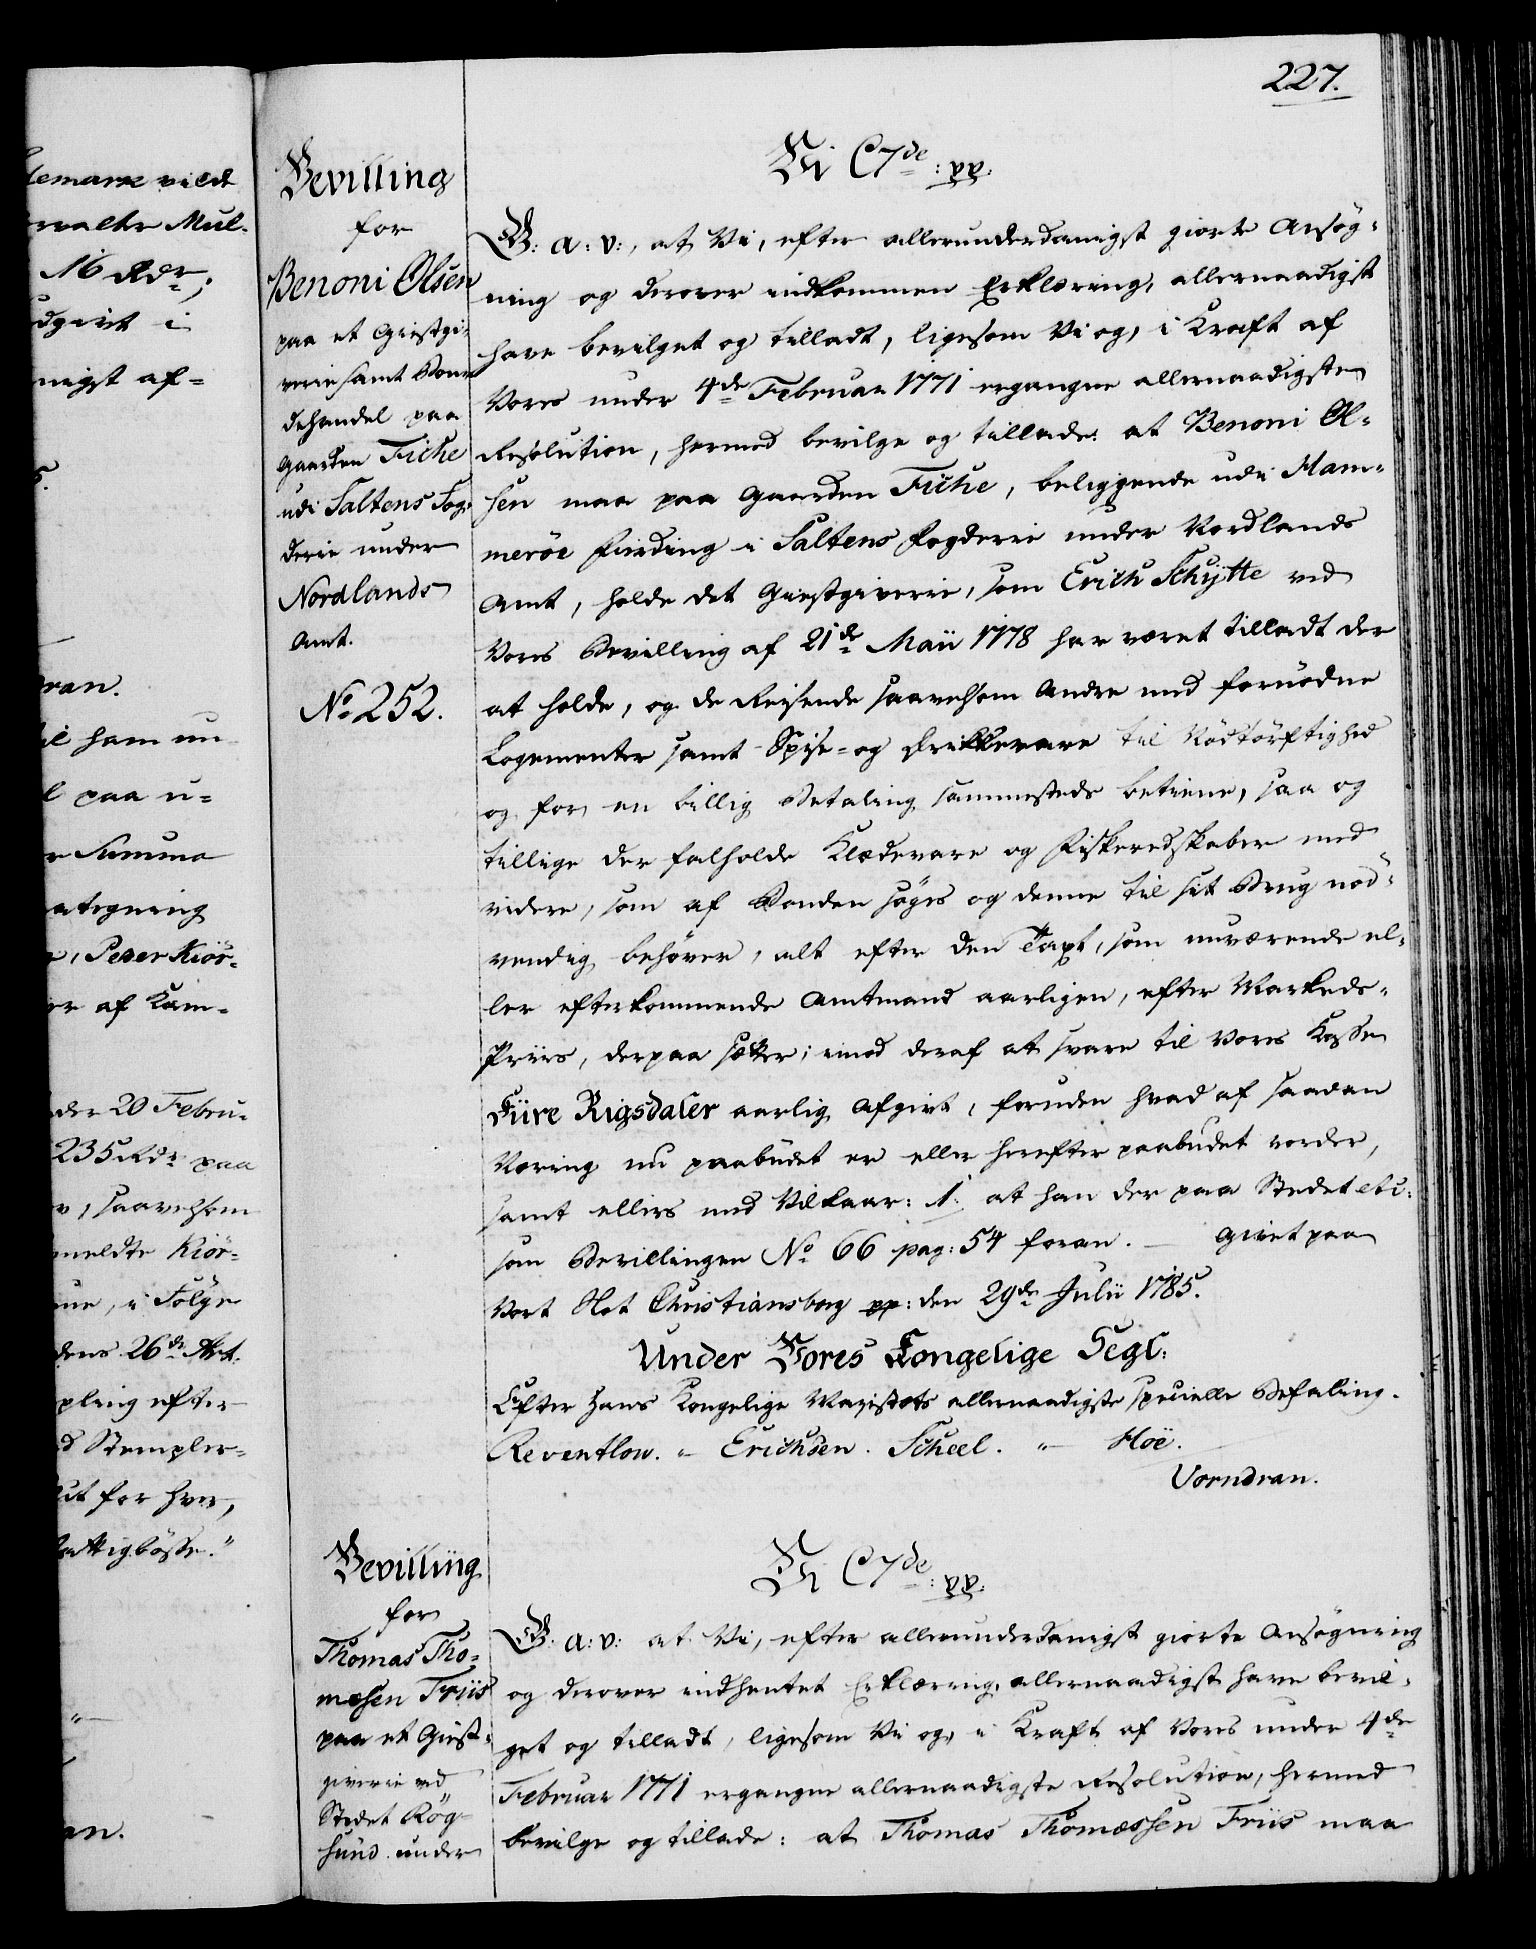 227.
lemarre vilde
rvalter Mul-
16 Rdr,
udgivt i
nigst af=
5.
dran.
til ham un
l paa u=
r Summa
ategning
, Peder Kiör-
er af Kam-
der 20 Febru-
235 Rdr paa
v, saavelsom
meldte Kiör-
ne, i Følge
dens 26de Art.
pling efter
d Stempler-
ut for hver,
attigbösse."
an.
Bevilling
for
Benoni Olsen
paa et Giestgi-
verie samt Bon-
dehandel paa
Gaarden Fiche
udi Saltens Fog-
derie under
Nordlands
Amt.
No 252.
Vi C7de: pp.
G: A: V:, at Vi, efter allerunderdanigst giorte Ansøg-
ning og derover indkommen Erklæring, allernaadigst
have bevilget og tilladt, ligesom Vi og, i Kraft af
Vores under 4de Februar 1771 ergangne allernaadigste
Resolution, hermed bevilge og tillade: at Benoni Ol-
sen maa paa Gaarden Fiche, beliggende udi Ham-
meröe Fierding i Saltens Fogderie under Nordlands
Amt, holde det Giestgiverie, som Erich Schytte ved
Vores Bevilling af 21de Maii 1778 har været tilladt der
at holde, og de Reisende saavelsom Andre med fornødne
Logementer samt Spise- og Drikkevare til Nødtörftighed
og for en billig Betaling sammesteds betiene, saa og
tillige der falholde Klædevare og Fiskeredskaber med
videre, som af Bonden søges og denne til sit Brug nød-
vendig behøver, alt efter den Taxt, som nuværende el-
ler efterkommende Amtmand aarligen, efter Markeds-
Priis, derpaa sætter; imod deraf at svare til Vores Kasse
Fiire Rigsdaler aarlig Afgivt, foruden hvad af saadan
Næring nu paabudet er eller herefter paabudet vorder,
samt ellers med Vilkaar: 1: at han der paa Stedet etc:
som Bevillingen No 66 pag: 54 foran. — Givet paa
Vort Slot Christiansborg pp: den 29de Julii 1785.
Under Vores Kongelige Segl:
Efter Hans Kongelige Majestæts allernaadigste specielle Befaling.
Reventlow. " Erichsen. Scheel. " Hoë.
Vorndran.
Bevilling
for
Thomas Tho-
mæsen Friis
paa et Giest-
giverie ved
Stedet Røg-
sund under
Vi C7de: pp.
G: A: V: at Vi, efter allerunderdanigst giorte Ansøgning
og derover indhentet Erklæring, allernaadigst have bevil-
get og tilladt, ligesom Vi og, i Kraft af Vores under 4de
Februar 1771 ergangne allernaadigste Resolution, hermed
bevilge og tillade: at Thomas Thomæssen Friis maa